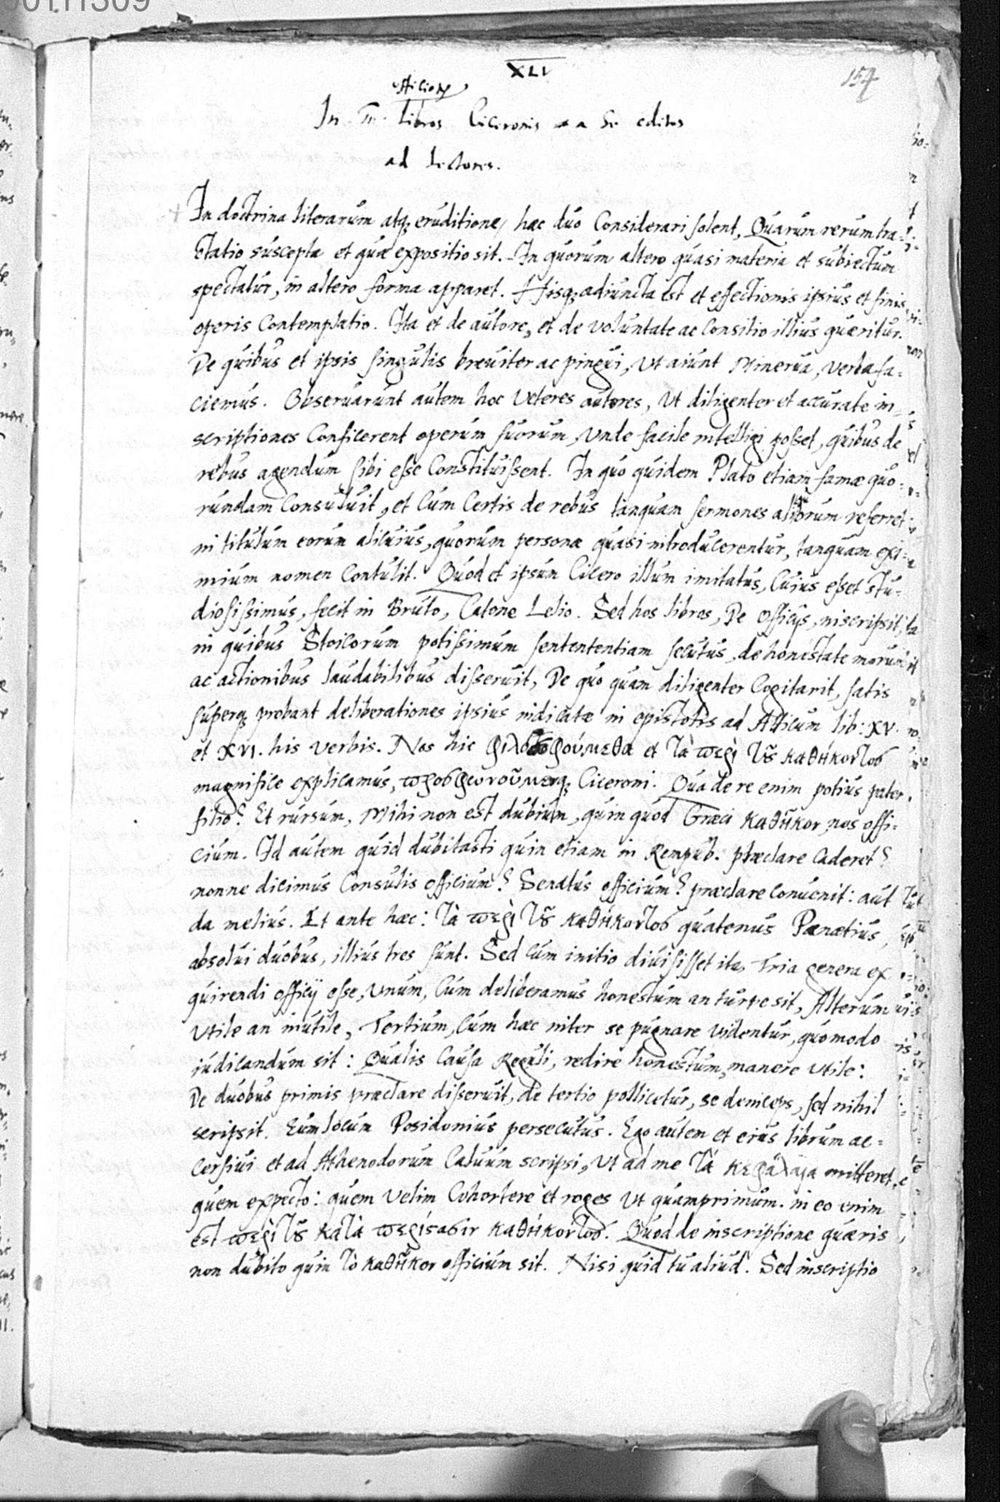 XLI
154
In III libros Ciceronis a se editos
ad lectores.
In doctrina literarum atq; eruditione, hæc duo Considerari solent, Quarum rerum tra-
ctatio suscepta et quæ expositio sit. In quorum altero quasi materia et subiectum
spectatur, in altero forma apparet. Hisq; adiuncta est et effectionis ipsius et finis
operis Contemplatio. Ita et de autore, et de voluntate ac Consilio illius quæritur.
De quibus et ipsis singulis breuiter ac pingui, ut aiunt Minerua, verba fa-
ciemus. Obseruarunt autem hoc Veteres autores, Ut diligenter et accurate in-
scriptiones Conficerent operum suorum, Unde facile intelligi posset, quibus de
rebus agendum sibi esse Constituissent. In quo quidem Plato etiam famæ quo-
rundam Consuluit, et Cum Certis de rebus tanquam sermones aliorum referret
in titulum eorum alicuius, quorum personæ quasi introducerentur, tanquam exi-
mium nomen Contulit. Quod et ipsum Cicero illum imitatus, Cuius esset stu-
diosissimus, fecit in Bruto, Catone Lelio. Sed hos libros, De Officijs, inscripsit,
in quibus Stoicorum potissimum sentententiam secutus de honestate morum
ac actionibus laudabilibus disseruit, De quo quam diligenter Cogitarit, satis
superq; probant deliberationes ipsius indicatæ in epistolis ad Atticum lib: XV.
et XVI. his verbis. Nos hic φιλοσοφούμεθα et τὰ περὶ τοῦ καθήκοντος
magnifice explicamus, προσφωνοῦμενq; Ciceroni. Qua de re enim potius pater
filio? Et rursum, Mihi non est dubium, quin quod Græci καθῆκον, nos offi-
cium. Id autem quid dubitasti quin etiam in Rempub. præclare Caderet?
nonne dicimus Consulis officium? Senatus officium? præclare conuenit: aut
da melius. Et ante hæc: τὰ περὶ τοῦ καθήκοντος quatenus Panætius,
absolui duobus, illius tres sunt. Sed Cum initio diuisisset ita, Tria genera ex
quirendi officij esse, Unum, Cum deliberamus honestum an turpe sit, Alterum
Utile an inutile, Tertium, Cum hæc inter se pugnare videntur, quomodo
iudicandum sit: Qualis Causa Reguli, redire honestum, manere Utile:
De duobus primis præclare disseruit, de tertio pollicetur, se deinceps, sed nihil
scripsit. Eum locum Posidonius persecutus. Ego autem et eius librum ac-
cersiui et ad Athenodorum Caluum scripsi, Ut ad me τὰ κεφάλαια mitteret,
quem expecto: quem velim Cohortere et roges Ut quamprimum. in eo enim
est περὶ τοῦ κατὰ περίστασιν καθήκοντος. Quod de inscriptione quæris
non dubito quin τὸ καθῆκον officium sit. Nisi quid tu aliud. Sed inscriptio